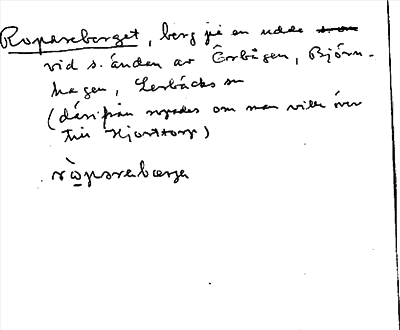 Roparebarget, berg på en udde
vid s. ändan av Örbågen, Björn-
hagen, Lerbäcks sn
(därifrån ropades om man ville över
till Hjorttorp)
ròparebærje